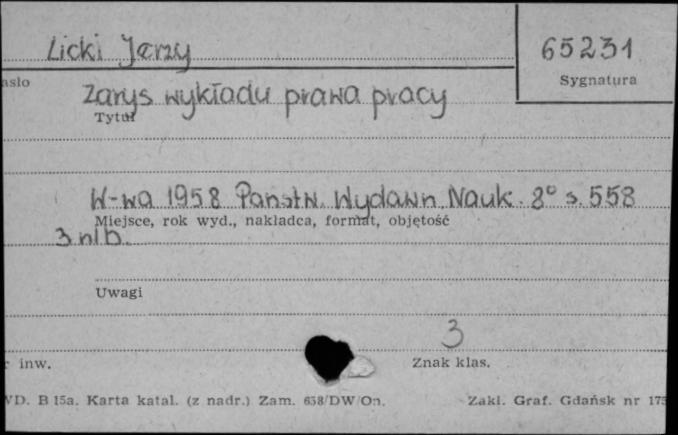 Licki Jerzy
65231
asło
Sygnatura
Zarys wykładu prawa pracy
Tytuł
W-wa 1958 Państw. Wydawn. Nauk. 8° s. 558
Miejsce, rok wyd., nakładca, format, objętość
3 nlb.
Uwagi
3
r inw.
Znak klas.
VD. B 15a. Karta katal. (z nadr.) Zam. 658/DW/On.
Zakl. Graf. Gdańsk nr 175